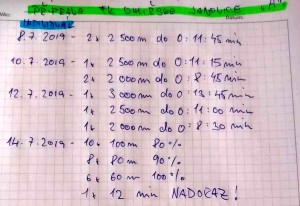 INDIVIDUAL
8.7.2019 - 2x 2 500m do 0:11:45 min
10.7.2019 - 1x 2 500m do 0:11:15 min
2x 2 000m do 0:8:45 min
12.7.2019 - 1x 3 000m do 0:13:45 min
1x 2 500m do 0:11:00 min
1x 2 000m do 0:8:30 min
14.7.2019 - 10x 100m 80%
8x 80m 90%
6x 60m 100%
1x 12 min NADORAZ!